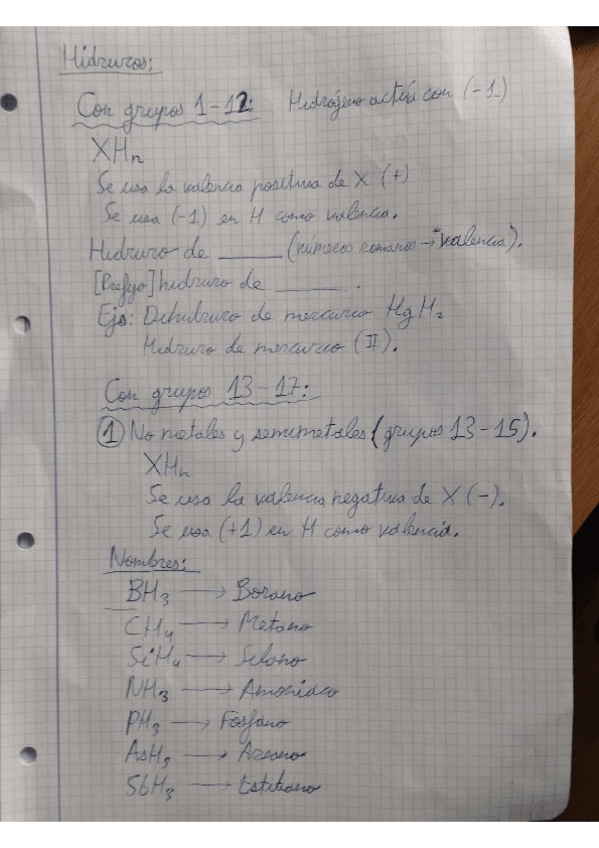 Hidruros:
Con grupos 1-12: Hidrógeno actúa con (-1)
XHn
Se usa la valencia positiva de X (+)
Se usa (-1) en H como valencia.
Hidruro de ______ (números romanos → *valencia).
[Prefijo] hidruro de ______.
Ejs: Dihidruro de mercurio HgH2
Hidruro de mercurio (II).
Con grupos 13-17:
① No metales y semimetales (grupos 13-15).
XHn
Se usa la valencia negativa de X (-).
Se usa (+1) en H como valencia.
Nombres:
BH3 → Borano
CH4 → Metano
SiH4 → Silano
NH3 → Amoniaco
PH3 → Fosfano
AsH3 → Arsano
SbH3 → Estibano